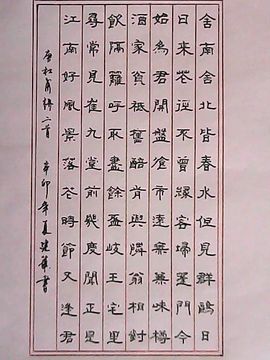 舍南舍北皆春水但見群鷗日
日來花徑不曾緣客埽蓬門今
始為君開盤飧市遠無兼味樽
酒家貧祗舊醅肯與隣翁相對
飲隔籬呼取盡餘盃岐王宅里
尋常見崔九堂前幾度聞正是
江南好風景落花時節又逢君
唐杜甫詩二首 辛卯年夏 書